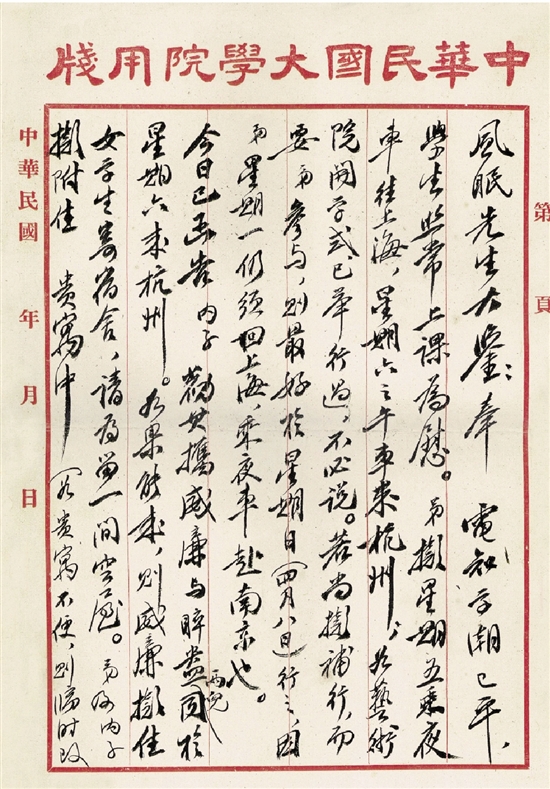 中華民國大學院用牋
第 頁
風眠先生大鑒:奉 電知学潮已平,
學生照常上課為慰。弟擬星期五乘夜
車往上海,星期六之午車来杭州;如藝術
院開学式已舉行過,不必說。若尚擬補行,而
要弟参与,則最好於星期日(四月八日)行之,因
弟星期一仍須回上海,乘夜車赴南京也。
今日已函告 内子 勸其攜威廉与睟盎两兒同於
星期六来杭州。如果能来,則威廉擬住
女学生寄宿舍,請為留一間空屋。弟及内子
擬附住 貴寓中(如貴寓不便,則臨時改
中華民國 年 月 日